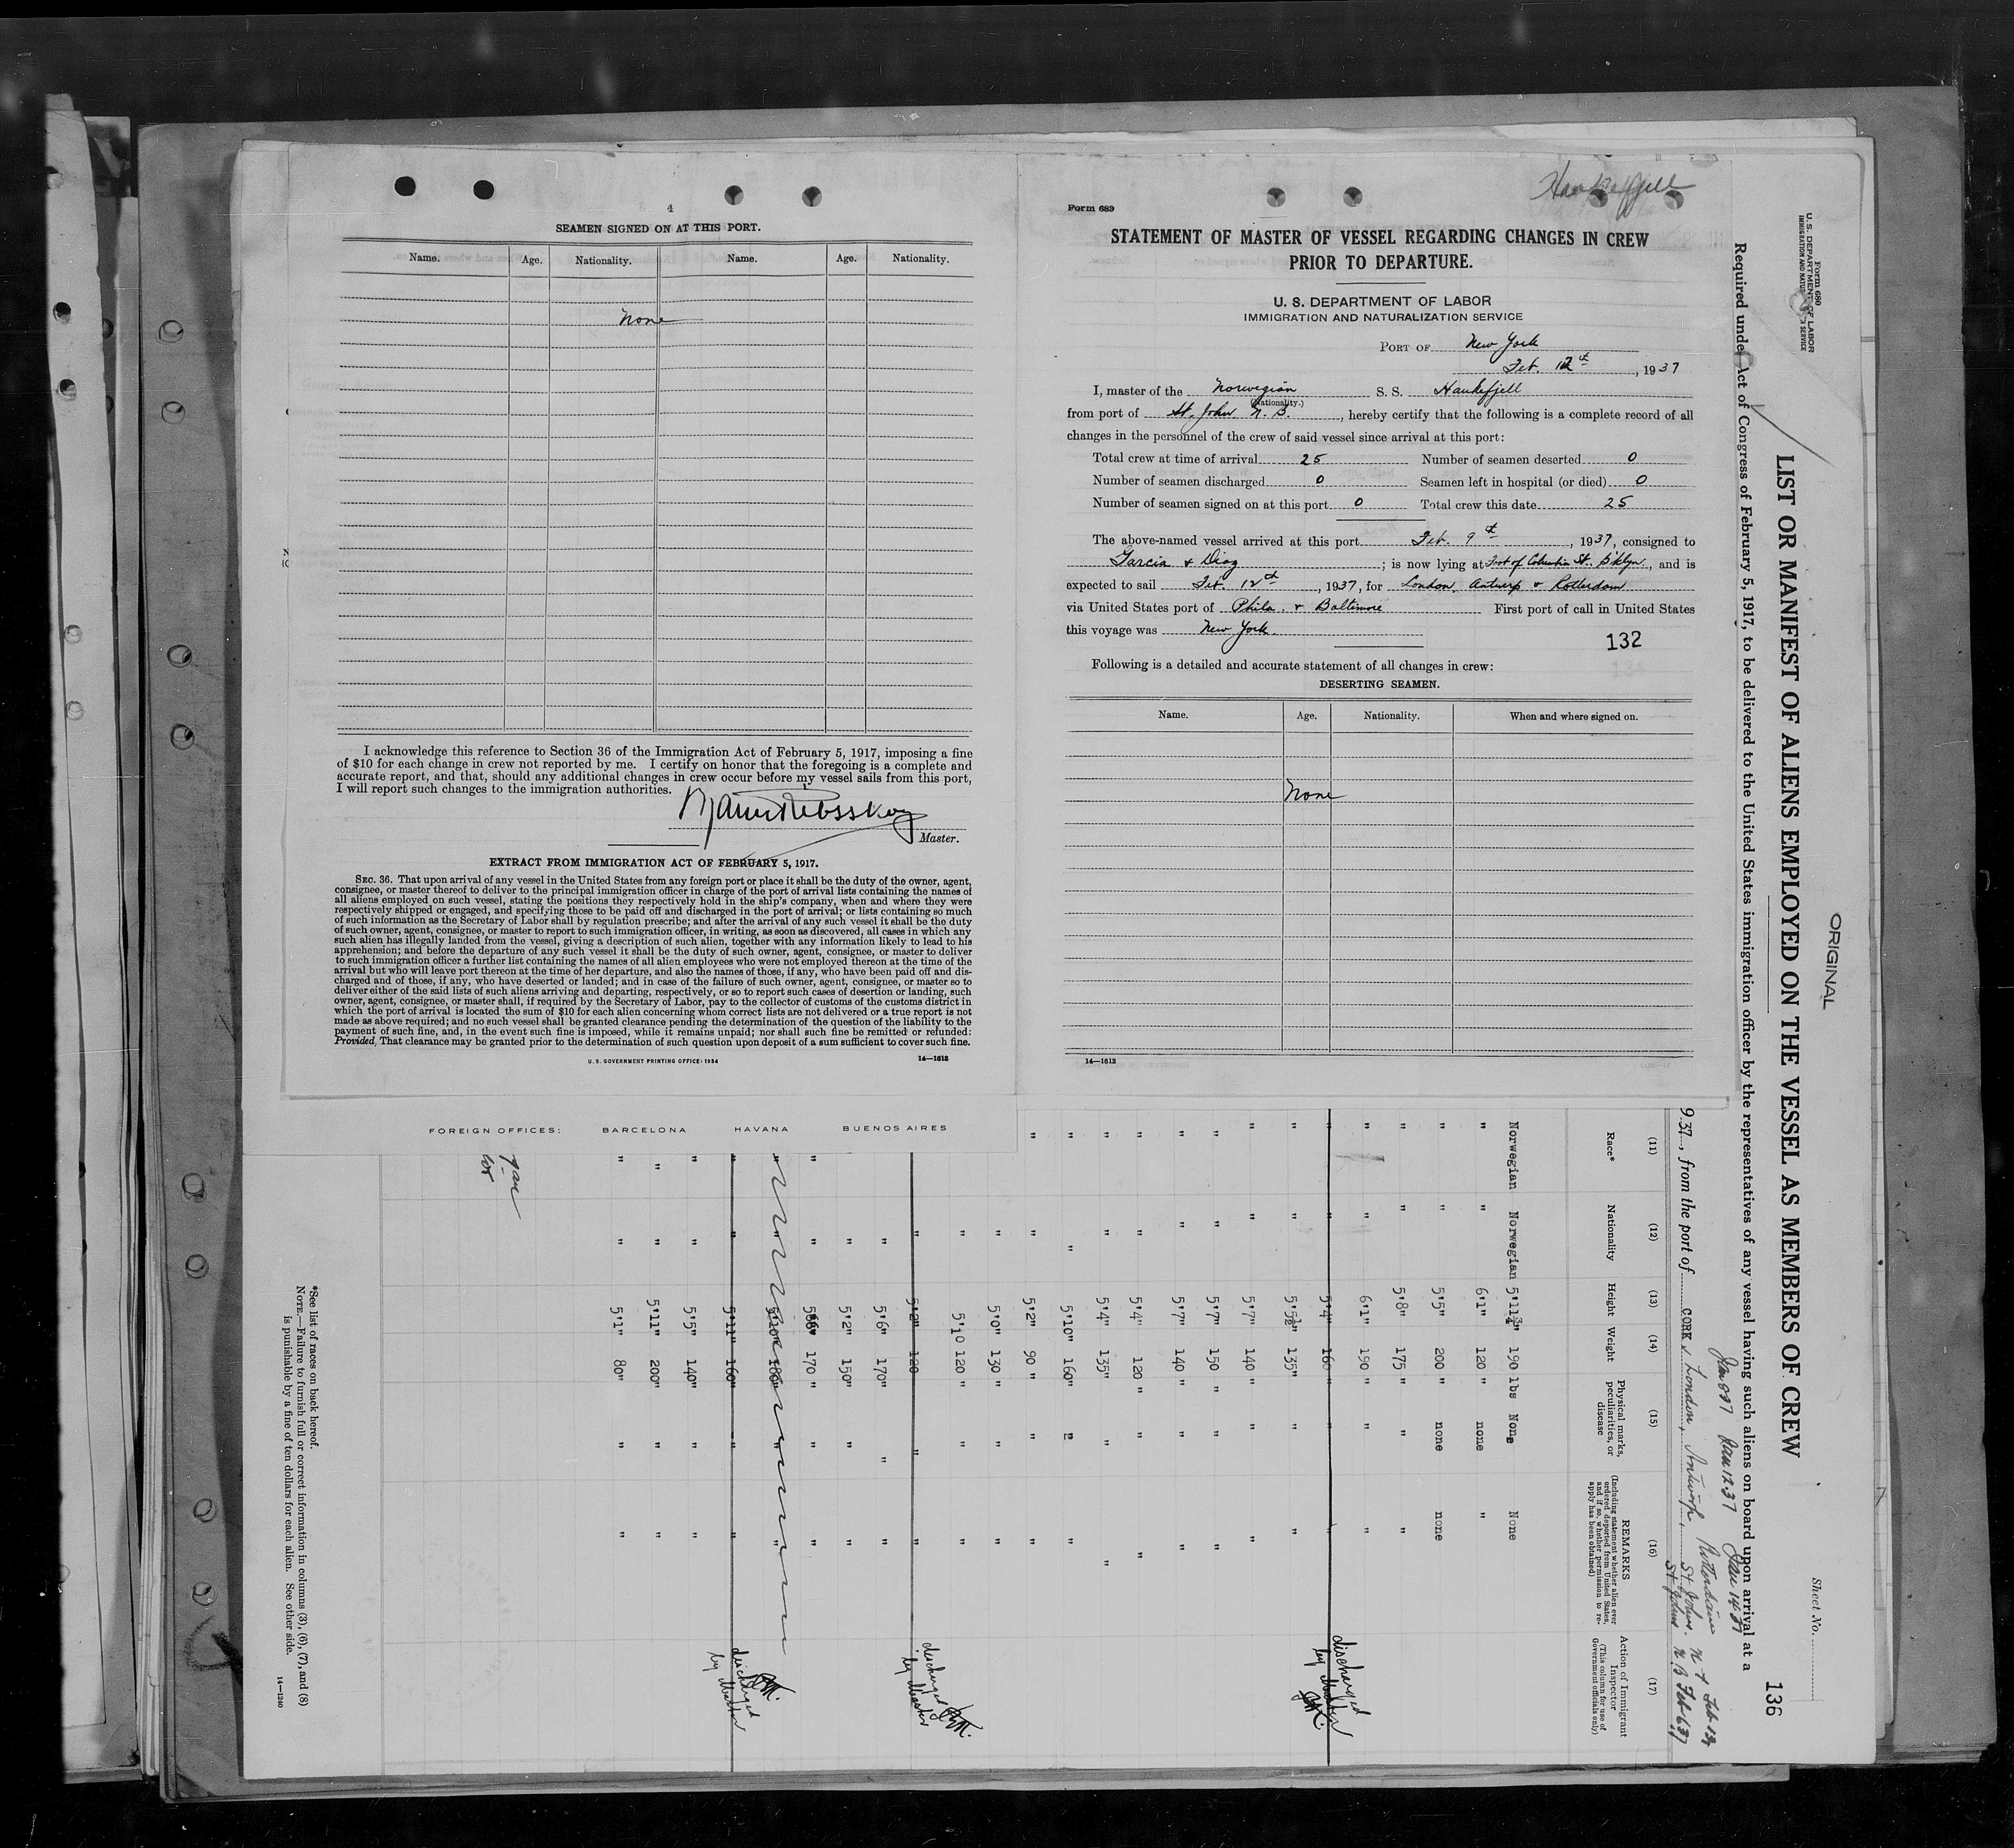 4
SEAMEN SIGNED ON AT THIS PORT.
Name. Age. Nationality. Name. Age. Nationality.
None
I acknowledge this reference to Section 36 of the Immigration Act of February 5, 1917, imposing a fine
of $10 for each change in crew not reported by me. I certify on honor that the foregoing is a complete and
accurate report, and that, should any additional changes in crew occur before my vessel sails from this port,
I will report such changes to the immigration authorities.
Master.
EXTRACT FROM IMMIGRATION ACT OF FEBRUARY 5, 1917.
SEC. 36. That upon arrival of any vessel in the United States from any foreign port or place it shall be the duty of the owner, agent,
consignee, or master thereof to deliver to the principal immigration officer in charge of the port of arrival lists containing the names of
all aliens employed on such vessel, stating the positions they respectively hold in the ship's company, when and where they were
respectively shipped or engaged, and specifying those to be paid off and discharged in the port of arrival; or lists containing so much
of such information as the Secretary of Labor shall by regulation prescribe; and after the arrival of any such vessel it shall be the duty
of such owner, agent, consignee, or master to report to such immigration officer, in writing, as soon as discovered, all cases in which any
such alien has illegally landed from the vessel, giving a description of such alien, together with any information likely to lead to his
apprehension; and before the departure of any such vessel it shall be the duty of such owner, agent, consignee, or master to deliver
to such immigration officer a further list containing the names of all alien employees who were not employed thereon at the time of the
arrival but who will leave port thereon at the time of her departure, and also the names of those, if any, who have been paid off and dis-
charged and of those, if any, who have deserted or landed; and in case of the failure of such owner, agent, consignee, or master so to
deliver either of the said lists of such aliens arriving and departing, respectively, or so to report such cases of desertion or landing, such
owner, agent, consignee, or master shall, if required by the Secretary of Labor, pay to the collector of customs of the customs district in
which the port of arrival is located the sum of $10 for each alien concerning whom correct lists are not delivered or a true report is not
made as above required; and no such vessel shall be granted clearance pending the determination of the question of the liability to the
payment of such fine, and, in the event such fine is imposed, while it remains unpaid; nor shall such fine be remitted or refunded:
Provided, That clearance may be granted prior to the determination of such question upon deposit of a sum sufficient to cover such fine.
U. S. GOVERNMENT PRINTING OFFICE: 1934 14—1613
Haukefjell
Form 689
STATEMENT OF MASTER OF VESSEL REGARDING CHANGES IN CREW
PRIOR TO DEPARTURE.
U. S. DEPARTMENT OF LABOR
IMMIGRATION AND NATURALIZATION SERVICE
PORT OF New York
Feb. 12th, 1937
I, master of the Norwegian S. S. Haukefjell
(Nationality.)
from port of St. John N. B., hereby certify that the following is a complete record of all
changes in the personnel of the crew of said vessel since arrival at this port:
Total crew at time of arrival 25 Number of seamen deserted 0
Number of seamen discharged 0 Seamen left in hospital (or died) 0
Number of seamen signed on at this port 0 Total crew this date 25
The above-named vessel arrived at this port Feb. 9th, 1937, consigned to
Garcia & Diaz; is now lying at Foot of Columbia St. B'klyn, and is
expected to sail Feb. 12th, 1937, for London, Antwerp & Rotterdam
via United States port of Phila. & Baltimore First port of call in United States
this voyage was New York.
132
Following is a detailed and accurate statement of all changes in crew:
DESERTING SEAMEN.
Name. Age. Nationality. When and where signed on.
None
14—1613
FOREIGN OFFICES: BARCELONA HAVANA BUENOS AIRES
Form 680
U. S. DEPARTMENT OF LABOR
ORIGINAL
Sheet No.
LIST OR MANIFEST OF ALIENS EMPLOYED ON THE VESSEL AS MEMBERS OF CREW
136
Required under Act of Congress of February 5, 1917, to be delivered to the United States immigration officer by the representatives of any vessel having such aliens on board upon arrival at a
Jan 12.37 Jan 14 37
937, from the port of CORK, London, Antwerp, Rotterdam St. Johns. N. F.
St Johns N B Feb 6 37
(11) (12) (13) (14) (15) (16) (17)
Race* Nationality Height Weight Physical marks, peculiarities, or disease REMARKS (Including statement whether alien ever ordered deported from United States, and if so, whether permission to re-apply has been obtained) Action of Immigrant Inspector (This column for use of Government officials only)
Norwegian Norwegian 5'11¾" 190 lbs None None
" " 6'1" 120 " none "
" " 5'5" 200 " none none
" " 5'8" 175 " " "
" 6'1" 190 " " "
" " 5'4" 160 " " " discharged by Master
" " 5'5½" 135" " "
" " 5'7" 140 " " "
" " 5'7" 150 " " "
" " 5'7" 140 " " "
" " 5'4" 120 " " "
" " 5'4" 135" " "
" " 5'10" 160" " "
" " 5'2" 90 " " "
" 5'0" 130 " " "
" 5'10 120 " " "
" 5'2" 120 " " discharged by Master
" 5'6" 170" " "
" 5'2" 150" " "
" " 170 " " "
" " 5'10" 180" " "
" " 5'11" 160" " " discharged by Master
" " 5'5" 140" " "
" " 5'11" 200" " "
" " 5'1" 80" " "
*See list of races on back hereof.
NOTE.—Failure to furnish full or correct information in columns (3), (6), (7), and (8)
is punishable by a fine of ten dollars for each alien. See other side.
14—1240